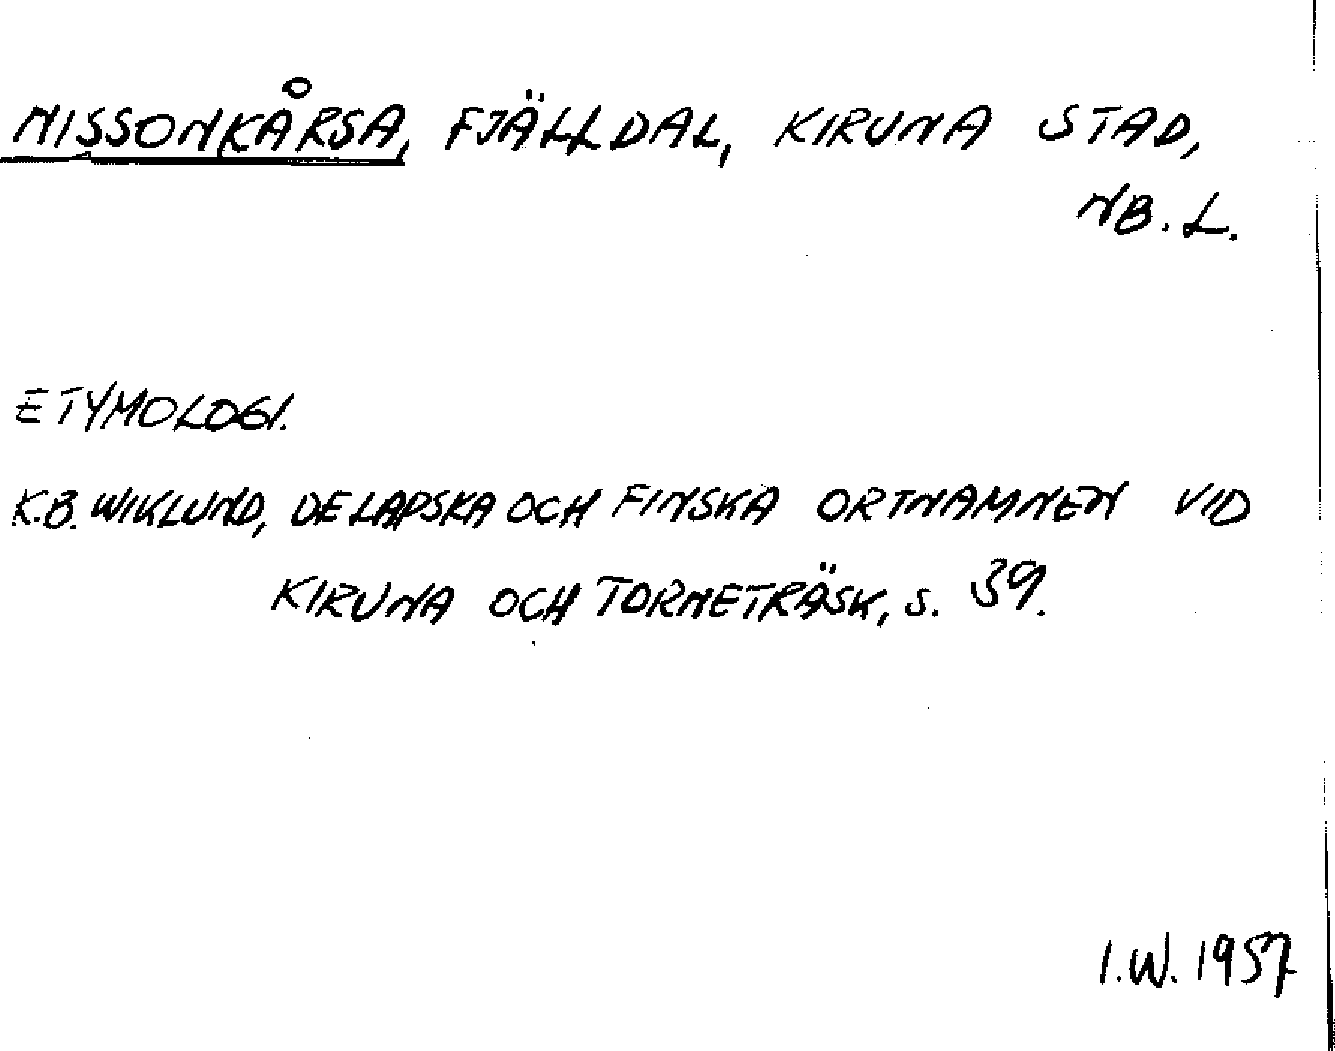 NISSONKÅRSA, FJÄLLDAL, KIRUNA STAD,
NB. L.
ETYMOLOGI.
K.B. WIKLUND, DE LAPSKA OCH FINSKA ORTNAMNEN VID
KIRUNA OCH TORNETRÄSK, S. 39.
I.W. 1957